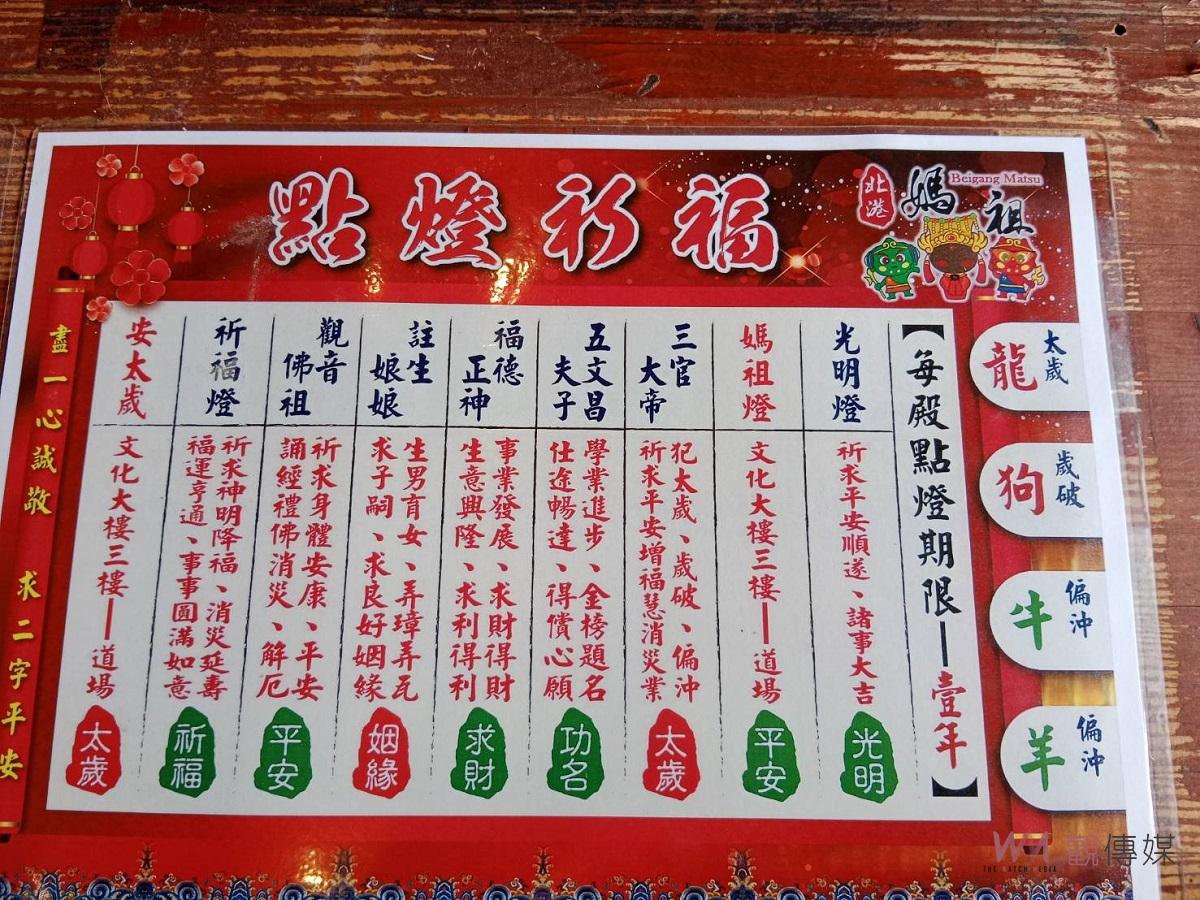 點燈祈福
北港
媽祖
Beigang Matsu
【每殿點燈期限—壹年】
光明燈
祈求平安順遂、諸事大吉
光明
媽祖燈
文化大樓三樓—道場
平安
三官
大帝
犯太歲、歲破、偏沖
祈求平安增福慧消災業
太歲
五文昌
夫子
學業進步、金榜題名
仕途暢達、得償心願
功名
福德
正神
事業發展、求財得財
生意興隆、求利得利
求財
註生
娘娘
生男育女、弄璋弄瓦
求子嗣、求良好姻緣
姻緣
觀音
佛祖
祈求身體安康、平安
誦經禮佛消災、解厄
平安
祈福燈
祈求神明降福、消災延壽
福運亨通、事事圓滿如意
祈福
安太歲
文化大樓三樓—道場
太歲
太歲
龍
歲破
狗
偏沖
牛
偏沖
羊
盡一心誠敬 求二字平安
觀傳媒
THE WATCH MEDIA